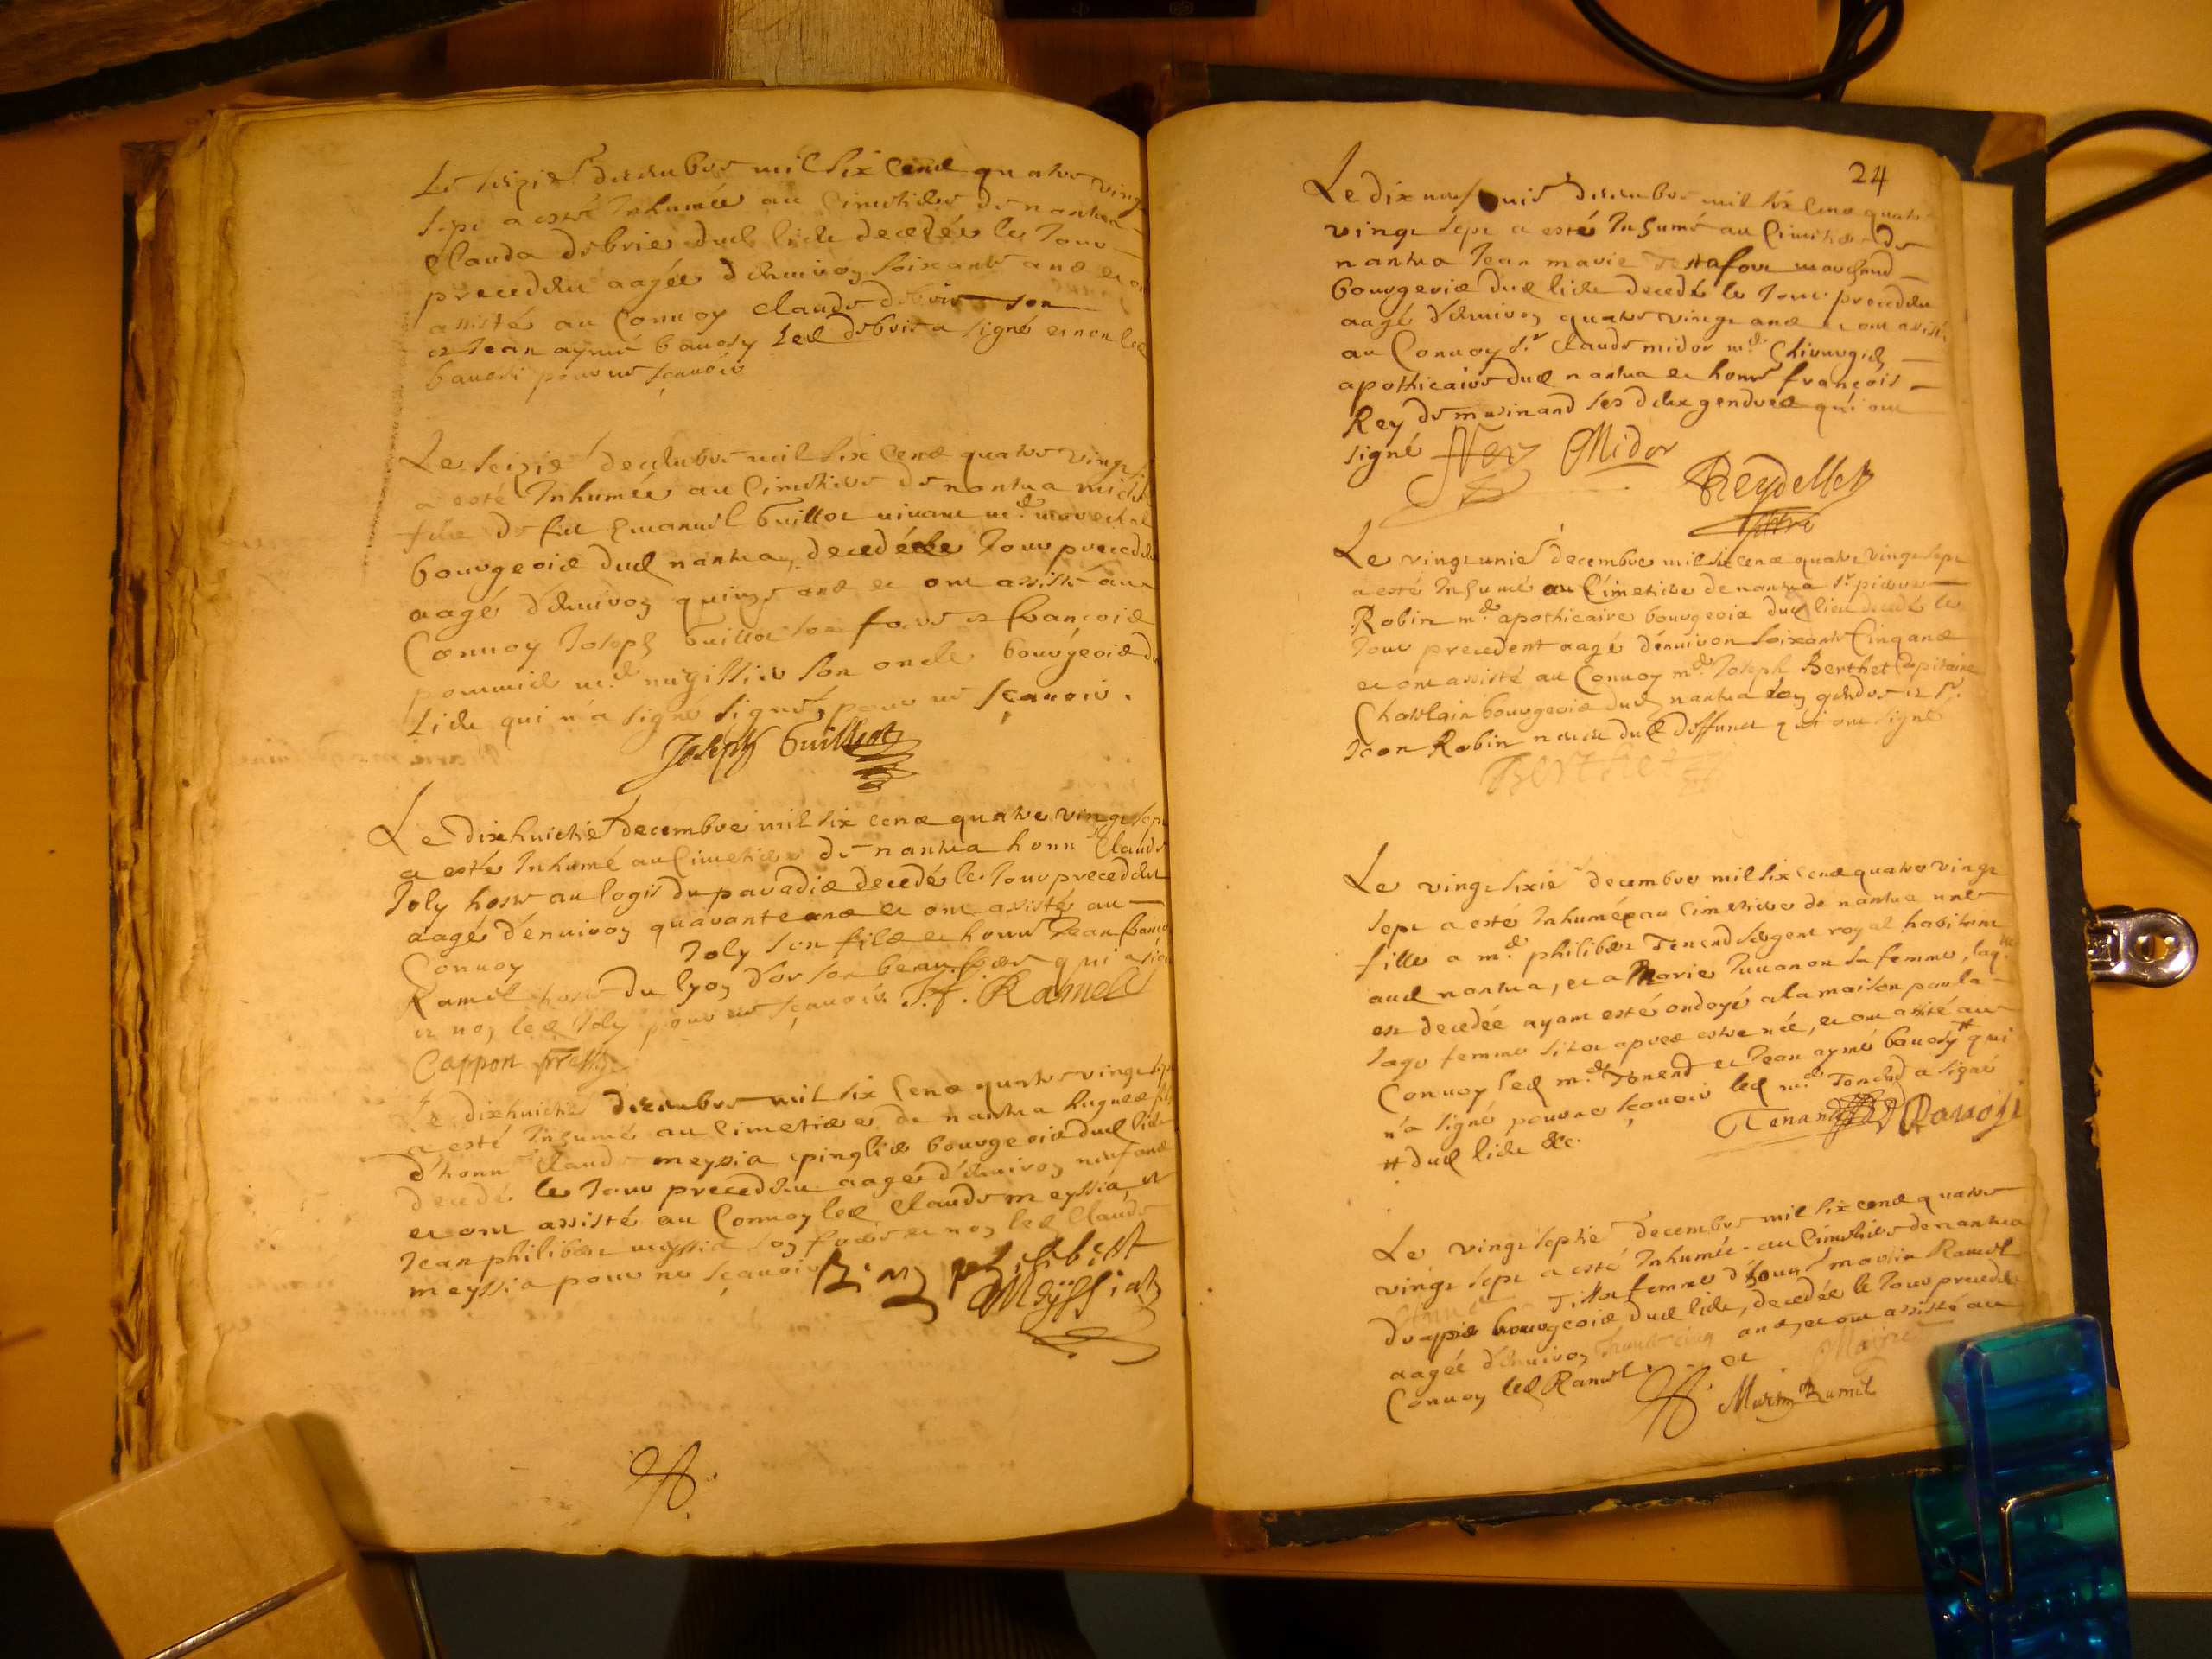 Le seizie decembre mil six cens quatre vingt
sept a esté Inhumée au Cimetiere de nantua
Clauda debrie dud lieu decedée le Jour
precedent aagée d'environ soixante ans et
assisté au Convoy Claude debrie son
et Jean aymé bauosy led debrie a signé et non led
bauosi pour ne sçauoir
Le seizie decembre mil six cens quatre vingt
a esté Inhumée au Cimetiere de nantua
de feu Emanuel Guillot vivant md
bourgeois dud nantua, decedé le Jour precedent
aagé d'environ quinze ans et ont assisté au
Convoy Joseph Guillot son frere et françois
son oncle bourgeois du
Lieu qui n'a signé pour ne sçauoir.
Joseph Guillot
Le dixhuictie decembre mil six cens quatre vingt sept
a esté Inhumé au Cimetiere de nantua honn Claude
Joly hoste au logis du paradis decedé le Jour precedent
aagé d'enuiron quarante ans et ont assisté au
Convoy Joly son fils et honn Jean
Ramel hoste du lyon d'or son beau frere qui a signé
et non led Joly pour ne sçauoir J. f. Ramel
Cappon
Le dixhuictie decembre mil six cens quatre vingt sept
a esté Inhumé au Cimetiere de nantua hugues
d'honn Claude meyssia epinglie bourgeois dud lieu
decedé le Jour precedent aagé d'enuiron neuf ans
et ont assisté au Convoy led Claude meyssia, et
Jean philibert meyssia son frere et non led Claude
meyssia pour ne sçauoir
Jean philibert
Meyssiat
24
Le dix neufuie decembre mil six cens quatre
vingt sept a esté Inhumé au Cimetiere de
nantua Jean marie Testafort marchand
bourgeois dud lieu decedé le Jour precedent
aagé d'enuiron quatre vingt ans et ont assisté
au Convoy sr Claude midor md Chirurgien
apothicaire dud nantua et honn françois
Rey de ses deux gendres qui ont
signé Midor
Reydellet
Le vingt unie decembre mil six cens quatre vingt sept
a esté Inhumé au Cimetiere de nantua sr pierre
Robin md apothicaire bourgeois dud lieu decedé le
Jour precedent aagé d'enuiron soixante Cinq ans
et ont assisté au Convoy md Joseph Berthet Capitaine
Chastelain bourgeois dud nantua son gendre et sr
Jean Robin neveu dud deffunct qui ont signé
Berthet
Le vingt sixie decembre mil six cens quatre vingt
sept a esté Inhumée au Cimetiere de nantua une
fille a md philibert Tenend sergent royal habitant
aud nantua, et a Marie Juuanon sa femme, laq
est decedée ayant esté ondoyé a la maison par la
sage femme sitot apres estre née, et ont assité au
Convoy led md Tenend et Jean aymé bauosy # qui
n'a signé pour ne sçauoir led md Tenend a signé
# dud lieu &c. Tenand Bauosi
Le vingt septie decembre mil six cens quatre
vingt sept a esté Inhumée au Cimetiere de nantua
femme d'honn martin Ramel
drapie bourgeois dud lieu, decedée le Jour precedent
aagée d'enuiron trente cinq ans, et ont assisté au
Convoy led Ramel et
Martin Ramel